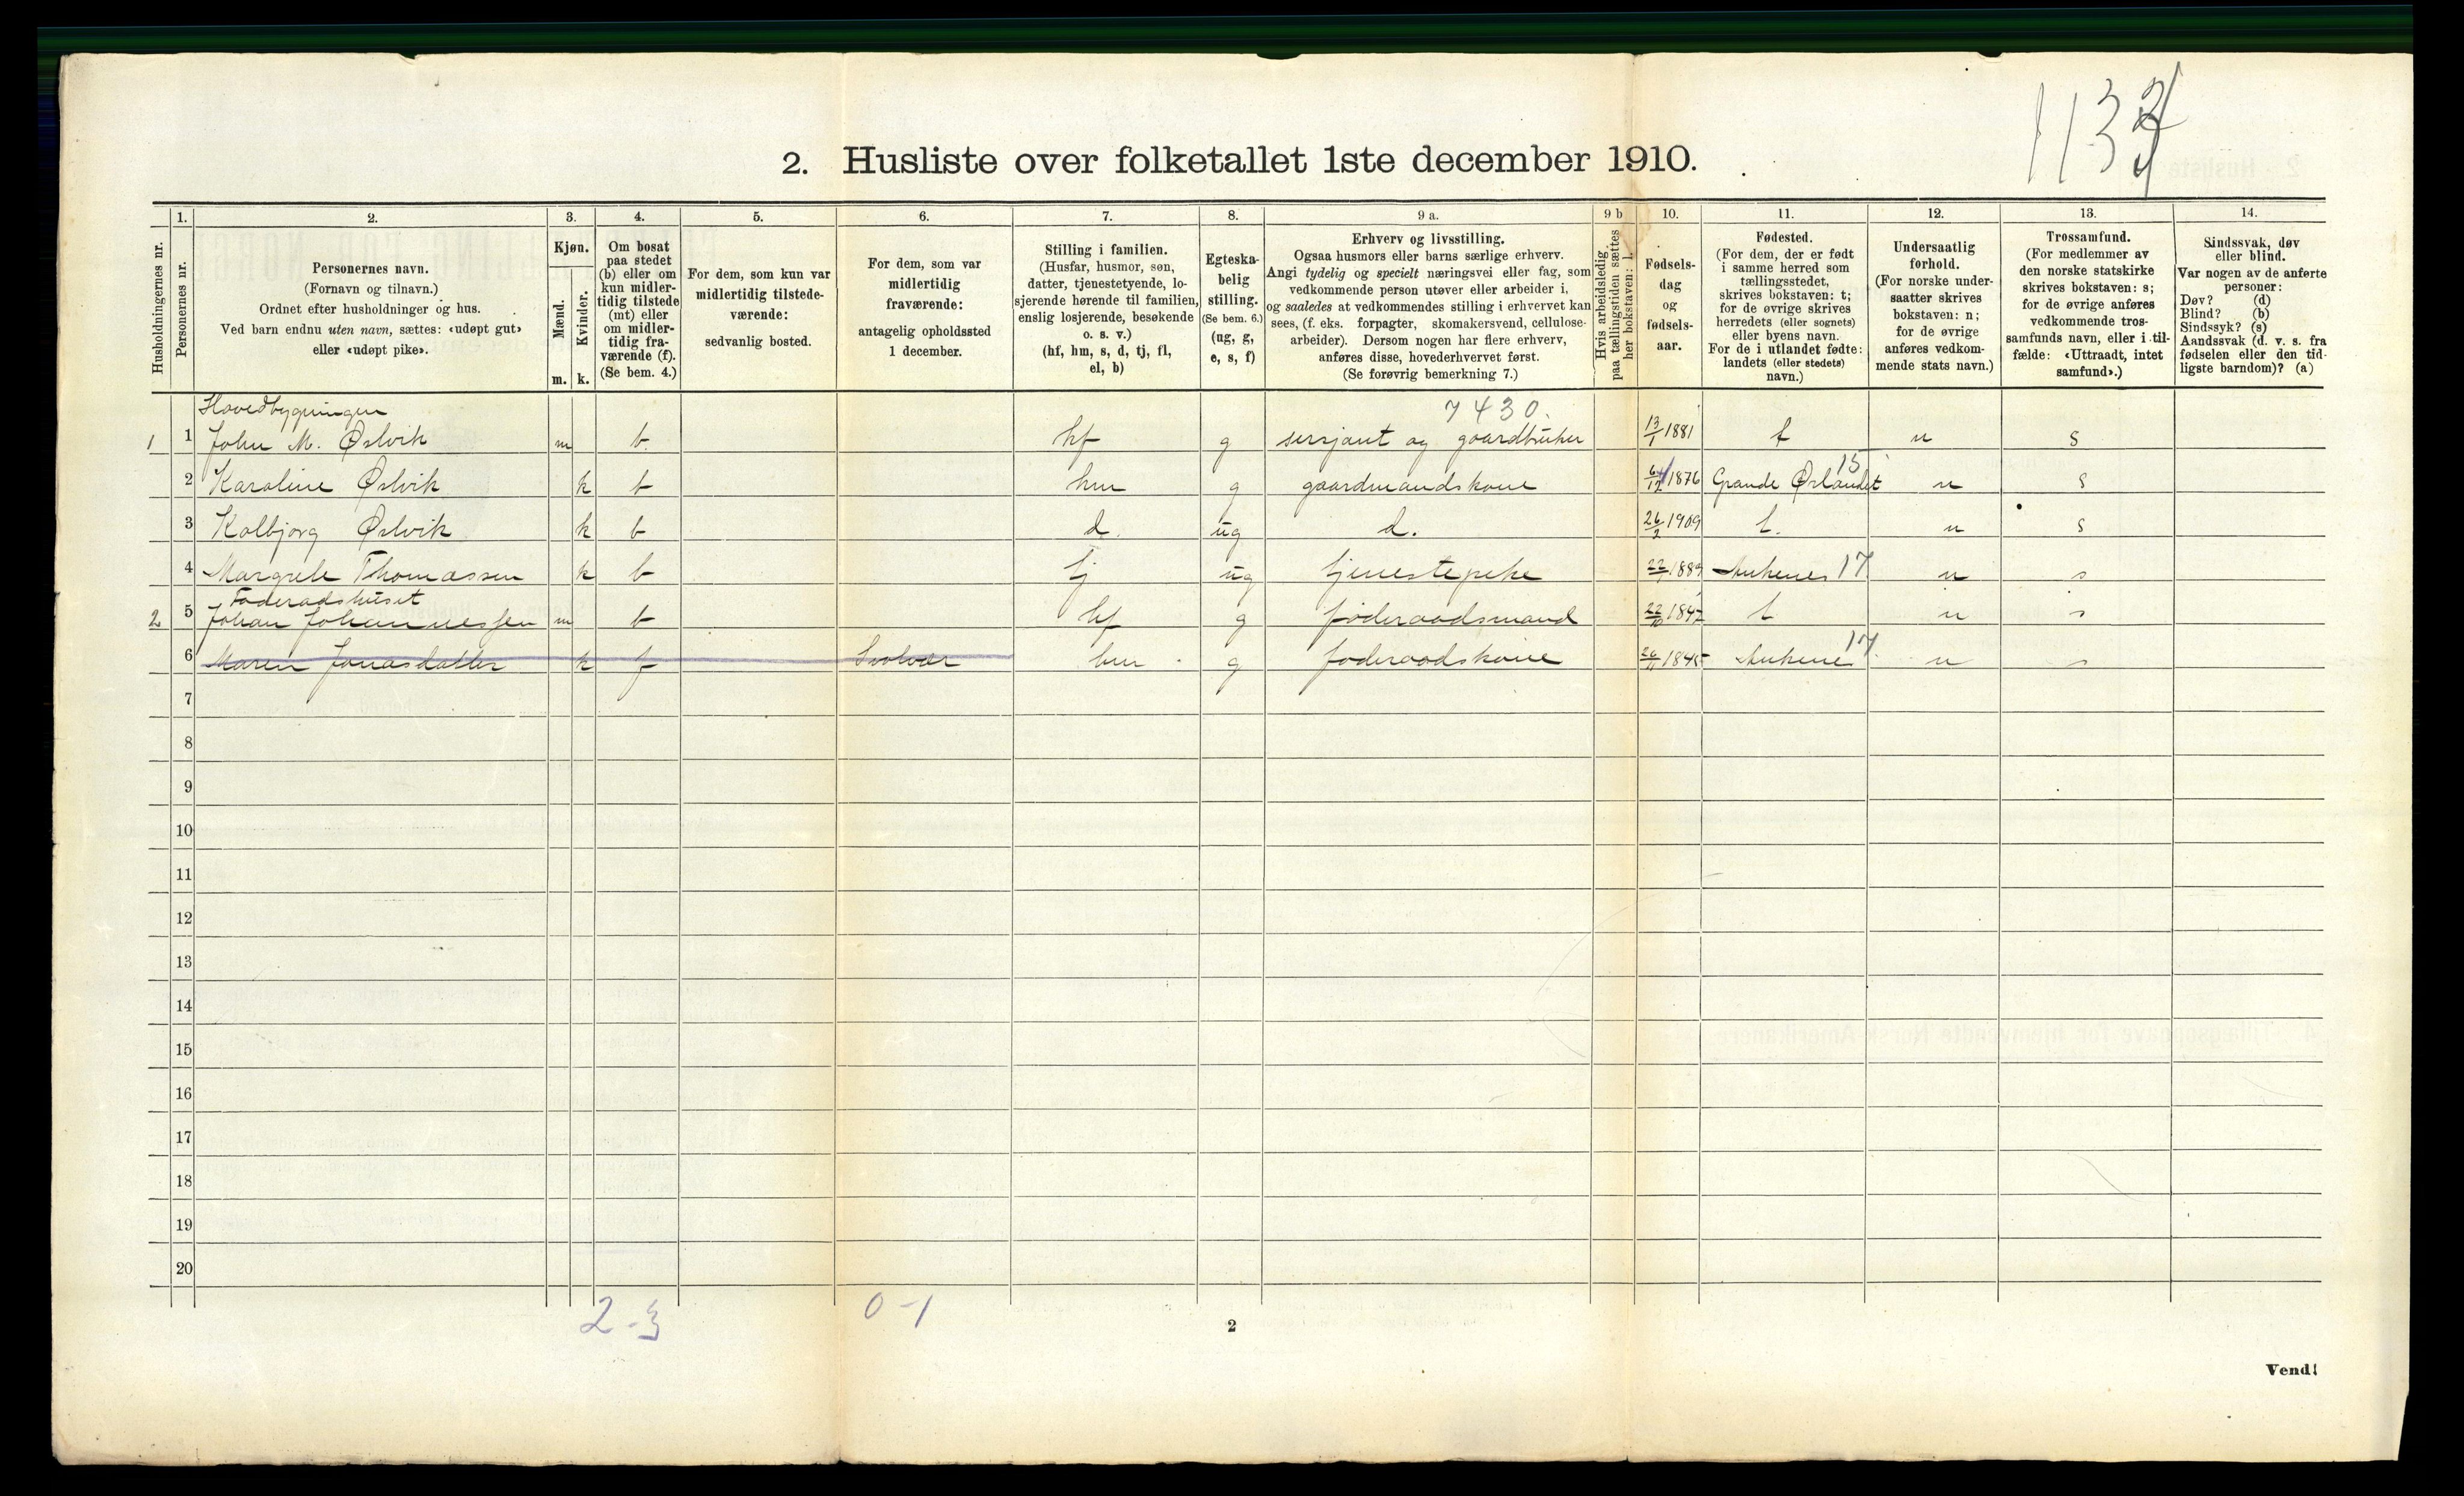 2. Husliste over folketallet 1ste december 1910.
Husholdningernes nr.
1.
Personernes nr.
2.
Personernes navn.
(Fornavn og tilnavn.)
Ordnet efter husholdninger og hus.
Ved barn endnu uten navn, sættes: «udøpt gut»
eller «udøpt pike».
3.
Kjøn.
Mænd.
Kvinder.
m. k.
4.
Om bosat
paa stedet
(b) eller om
kun midler-
tidig tilstede
(mt) eller
om midler-
tidig fra-
værende (f).
(Se bem. 4.)
5.
For dem, som kun var
midlertidig tilstede-
værende:
sedvanlig bosted.
6.
For dem, som var
midlertidig
fraværende:
antagelig opholdssted
1 december.
7.
Stilling i familien.
(Husfar, husmor, søn,
datter, tjenestetyende, lo-
sjerende hørende til familien,
enslig losjerende, besøkende
o. s. v.)
(hf, hm, s, d, tj, fl,
el, b)
8.
Egteska-
belig
stilling.
(Se bem. 6.)
(ug, g,
e, s, f)
9 a.
Erhverv og livsstilling.
Ogsaa husmors eller barns særlige erhverv.
Angi tydelig og specielt næringsvei eller fag, som
vedkommende person utøver eller arbeider i,
og saaledes at vedkommendes stilling i erhvervet kan
sees, (f. eks. forpagter, skomakersvend, cellulose-
arbeider). Dersom nogen har flere erhverv,
anføres disse, hovederhvervet først.
(Se forøvrig bemerkning 7.)
9 b
Hvis arbeidsledig
paa tællingstiden sættes
her bokstaven: l.
10.
Fødsels-
dag
og
fødsels-
aar.
11.
Fødested.
(For dem, der er født
i samme herred som
tællingsstedet,
skrives bokstaven: t;
for de øvrige skrives
herredets (eller sognets)
eller byens navn.
For de i utlandet fødte:
landets (eller stedets)
navn.)
12.
Undersaatlig
forhold.
(For norske under-
saatter skrives
bokstaven: n;
for de øvrige
anføres vedkom-
mende stats navn.)
13.
Trossamfund.
(For medlemmer av
den norske statskirke
skrives bokstaven: s;
for de øvrige anføres
vedkommende tros-
samfunds navn, eller i til-
fælde: «Uttraadt, intet
samfund».)
14.
Sindssvak, døv
eller blind.
Var nogen av de anførte
personer:
Døv? (d)
Blind? (b)
Sindssyk? (s)
Aandssvak (d. v. s. fra
fødselen eller den tid-
ligste barndom)? (a)
Hovedbygningen 7430.
1 1 John M. Ørlvik m b. hf g sersjant og gaardbruker 13/1 1881 t n s
15
2 Karoline Ørlvik k b hm g gaardmandskone 6/12 1876 Grande Ørlandet n s
3 Kolbjorg Ørlvik k b d. ug d. 26/2 1909 t. n s
4 Margrete Thomassen k b tj ug tjenestepike 1889 Ankenes 17 n s
Føderadshuset
2 5 Johan Johannessen m b hf g føderaadsmand 22/10 184 t n s
17.
6 Maren Jonasdatter k f Svolvær hm g føderaadskone 26/11 1845 Ankenes n s
7
8
9
10
11
12
13
14
15
16
17
18
19
20
2-3 0-1
2
Vend!